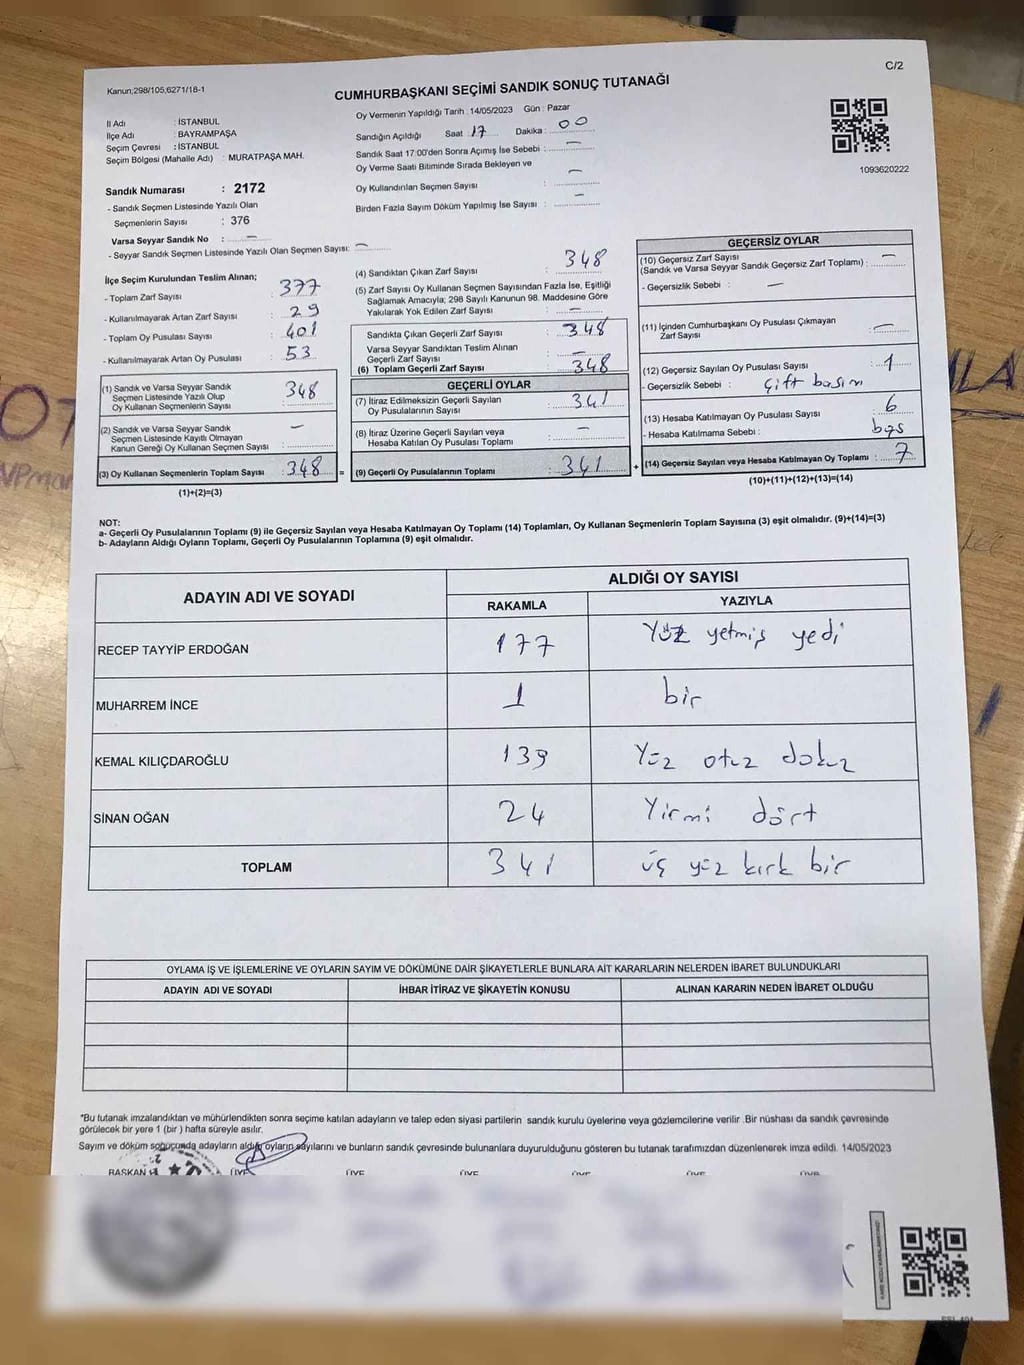 C/2
Kanun;298/105,6271/18-1
CUMHURBAŞKANI SEÇİMİ SANDIK SONUÇ TUTANAĞI
İl Adı : İSTANBUL
İlçe Adı : BAYRAMPAŞA
Seçim Çevresi : İSTANBUL
Seçim Bölgesi (Mahalle Adı) : MURATPAŞA MAH.
Sandık Numarası : 2172
- Sandık Seçmen Listesinde Yazılı Olan
Seçmenlerin Sayısı : 376
Varsa Seyyar Sandık No : —
- Seyyar Sandık Seçmen Listesinde Yazılı Olan Seçmen Sayısı: —
Oy Vermenin Yapıldığı Tarih : 14/05/2023 Gün : Pazar
Sandığın Açıldığı Saat : 17 Dakika : 00
Sandık Saat 17:00'den Sonra Açımış İse Sebebi : —
Oy Verme Saati Bitiminde Sırada Bekleyen ve
Oy Kullandırılan Seçmen Sayısı : —
Birden Fazla Sayım Döküm Yapılmış İse Sayısı : —
1093620222
İlçe Seçim Kurulundan Teslim Alınan;
- Toplam Zarf Sayısı : 377
- Kullanılmayarak Artan Zarf Sayısı : 29
- Toplam Oy Pusulası Sayısı : 401
- Kullanılmayarak Artan Oy Pusulası : 53
(1) Sandık ve Varsa Seyyar Sandık
Seçmen Listesinde Yazılı Olup
Oy Kullanan Seçmenlerin Sayısı : 348
(2) Sandık ve Varsa Seyyar Sandık
Seçmen Listesinde Kayıtlı Olmayan
Kanun Gereği Oy Kullanan Seçmen Sayısı : —
(3) Oy Kullanan Seçmenlerin Toplam Sayısı : 348 =
(1)+(2)=(3)
(4) Sandıktan Çıkan Zarf Sayısı : 348
(5) Zarf Sayısı Oy Kullanan Seçmen Sayısından Fazla İse, Eşitliği
Sağlamak Amacıyla; 298 Sayılı Kanunun 98. Maddesine Göre
Yakılarak Yok Edilen Zarf Sayısı : —
Sandıkta Çıkan Geçerli Zarf Sayısı : 348
Varsa Seyyar Sandıktan Teslim Alınan
Geçerli Zarf Sayısı : —
(6) Toplam Geçerli Zarf Sayısı : 348
GEÇERLİ OYLAR
(7) İtiraz Edilmeksizin Geçerli Sayılan
Oy Pusulalarının Sayısı : 341
(8) İtiraz Üzerine Geçerli Sayılan veya
Hesaba Katılan Oy Pusulası Toplamı : —
(9) Geçerli Oy Pusulalarının Toplamı : 341 +
GEÇERSİZ OYLAR
(10) Geçersiz Zarf Sayısı
(Sandık ve Varsa Seyyar Sandık Geçersiz Zarf Toplamı) : —
- Geçersizlik Sebebi : —
(11) İçinden Cumhurbaşkanı Oy Pusulası Çıkmayan
Zarf Sayısı : —
(12) Geçersiz Sayılan Oy Pusulası Sayısı : 1
- Geçersizlik Sebebi : çift basım
(13) Hesaba Katılmayan Oy Pusulası Sayısı : 6
- Hesaba Katılmama Sebebi : boş
(14) Geçersiz Sayılan veya Hesaba Katılmayan Oy Toplamı : 7
(10)+(11)+(12)+(13)=(14)
NOT:
a- Geçerli Oy Pusulalarının Toplamı (9) ile Geçersiz Sayılan veya Hesaba Katılmayan Oy Toplamı (14) Toplamları, Oy Kullanan Seçmenlerin Toplam Sayısına (3) eşit olmalıdır. (9)+(14)=(3)
b- Adayların Aldığı Oyların Toplamı, Geçerli Oy Pusulalarının Toplamına (9) eşit olmalıdır.
ADAYIN ADI VE SOYADI ALDIĞI OY SAYISI
RAKAMLA YAZIYLA
RECEP TAYYİP ERDOĞAN 177 Yüz yetmiş yedi
MUHARREM İNCE 1 bir
KEMAL KILIÇDAROĞLU 139 Yüz otuz dokuz
SİNAN OĞAN 24 Yirmi dört
TOPLAM 341 üç yüz kırk bir
OYLAMA İŞ VE İŞLEMLERİNE VE OYLARIN SAYIM VE DÖKÜMÜNE DAİR ŞİKAYETLERLE BUNLARA AİT KARARLARIN NELERDEN İBARET BULUNDUKLARI
ADAYIN ADI VE SOYADI İHBAR İTİRAZ VE ŞİKAYETİN KONUSU ALINAN KARARIN NEDEN İBARET OLDUĞU
*Bu tutanak imzalandıktan ve mühürlendikten sonra seçime katılan adayların ve talep eden siyasi partilerin sandık kurulu üyelerine veya gözlemcilerine verilir .Bir nüshası da sandık çevresinde
görülecek bir yere 1 (bir ) hafta süreyle asılır.
Sayım ve döküm sonucunda adayların aldığı oyların sayılarını ve bunların sandık çevresinde bulunanlara duyurulduğunu gösteren bu tutanak tarafımızdan düzenlenerek imza edildi. 14/05/2023
BAŞKAN ÜYE ÜYE ÜYE ÜYE ÜYE ÜYE